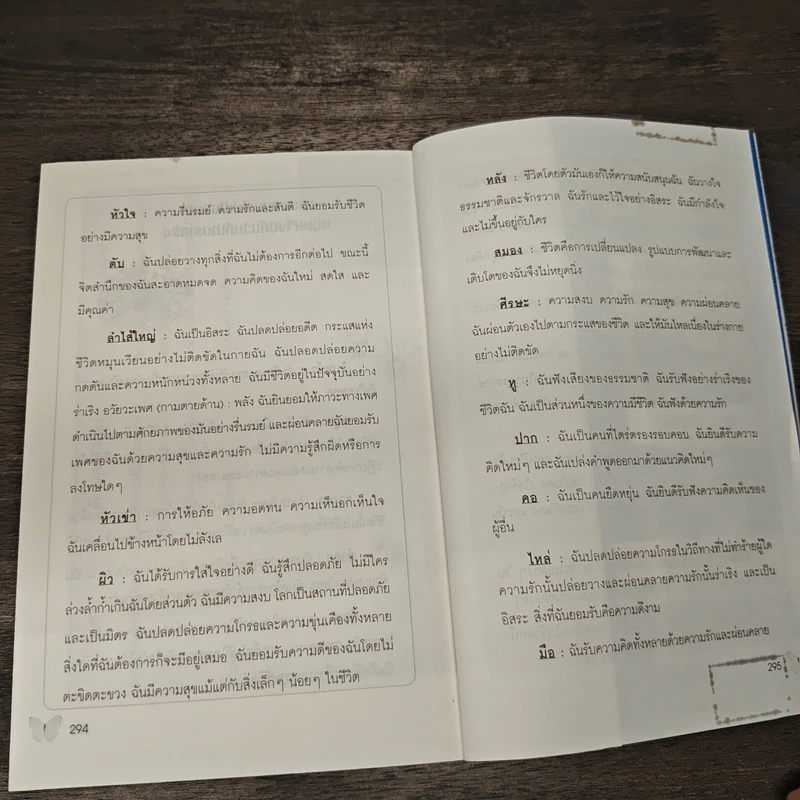 หัวใจ : ความรื่นรมย์ ความรักและสันติ ฉันยอมรับชีวิต
อย่างมีความสุข
ตับ : ฉันปล่อยวางทุกสิ่งที่ฉันไม่ต้องการอีกต่อไป ขณะนี้
จิตสำนึกของฉันสะอาดหมดจด ความคิดของฉันใหม่ สดใส และ
มีคุณค่า
ลำไส้ใหญ่ : ฉันเป็นอิสระ ฉันปลดปล่อยอดีต กระแสแห่ง
ชีวิตหมุนเวียนอย่างไม่ติดขัดในกายฉัน ฉันปลดปล่อยความ
กดดันและความหนักหน่วงทั้งหลาย ฉันมีชีวิตอยู่ในปัจจุบันอย่าง
ร่าเริง อวัยวะเพศ (กามตายด้าน) : พลัง ฉันยินยอมให้ภาวะทางเพศ
ดำเนินไปตามศักยภาพของมันอย่างรื่นรมย์ และผ่อนคลายฉันยอมรับ
เพศของฉันด้วยความสุขและความรัก ไม่มีความรู้สึกผิดหรือการ
ลงโทษใดๆ
หัวเข่า : การให้อภัย ความอดทน ความเห็นอกเห็นใจ
ฉันเคลื่อนไปข้างหน้าโดยไม่ลังเล
ผิว : ฉันได้รับการใส่ใจอย่างดี ฉันรู้สึกปลอดภัย ไม่มีใคร
ล่วงล้ำก้ำเกินฉันโดยส่วนตัว ฉันมีความสงบ โลกเป็นสถานที่ปลอดภัย
และเป็นมิตร ฉันปลดปล่อยความโกรธและความขุ่นเคืองทั้งหลาย
สิ่งใดที่ฉันต้องการก็จะมีอยู่เสมอ ฉันยอมรับความดีของฉันโดยไม่
ตะขิดตะขวง ฉันมีความสุขแม้แต่กับสิ่งเล็กๆ น้อยๆ ในชีวิต
294
หลัง : ชีวิตโดยตัวมันเองก็ให้ความสนับสนุนฉัน ฉันวางใจ
ธรรมชาติและจักรวาล ฉันรักและไว้ใจอย่างอิสระ ฉันมีกำลังใจ
และไม่ขึ้นอยู่กับใคร
สมอง : ชีวิตคือการเปลี่ยนแปลง รูปแบบการพัฒนาและ
เติบโตของฉันจึงไม่หยุดนิ่ง
ศีรษะ : ความสงบ ความรัก ความสุข ความผ่อนคลาย
ฉันผ่อนตัวเองไปตามกระแสของชีวิต และให้มันไหลเนื่องในร่างกาย
อย่างไม่ติดขัด
หู : ฉันฟังเสียงของธรรมชาติ ฉันรับฟังอย่างร่าเริงของ
ชีวิตฉัน ฉันเป็นส่วนหนึ่งของความมีชีวิต ฉันฟังด้วยความรัก
ปาก : ฉันเป็นคนที่ไตร่ตรองรอบคอบ ฉันยินดีรับความ
คิดใหม่ๆ และฉันเปล่งคำพูดออกมาด้วยแนวคิดใหม่ๆ
คอ : ฉันเป็นคนยืดหยุ่น ฉันยินดีรับฟังความคิดเห็นของ
ผู้อื่น
ไหล่ : ฉันปลดปล่อยความโกรธในวิถีทางที่ไม่ทำร้ายผู้ใด
ความรักนั้นปล่อยวางและผ่อนคลายความรักนั้นร่าเริง และเป็น
อิสระ สิ่งที่ฉันยอมรับคือความดีงาม
มือ : ฉันรับความคิดทั้งหลายด้วยความรักและผ่อนคลาย
295